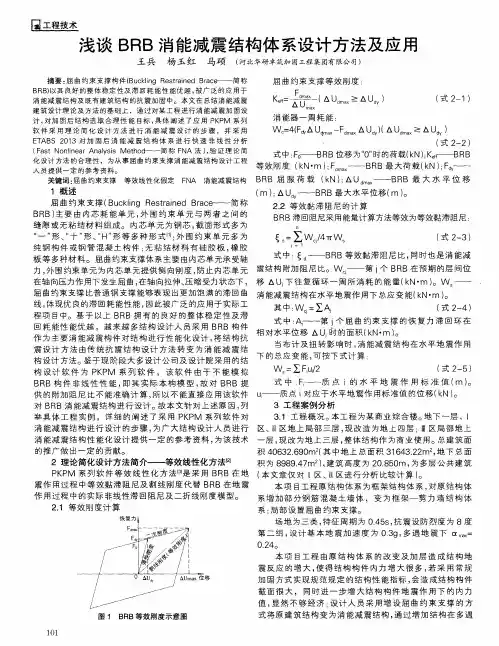 工程技术
浅谈 BRB 消能减震结构体系设计方法及应用
王兵 杨玉红 马硕 (河北华研卓筑加固工程集团有限公司)
摘要:屈曲约束支撑构件(Buckling Restrained Brace——简称
BRB)以其良好的整体稳定性及滞回耗能性能优越,被广泛的应用于
消能减震结构及既有建筑结构的抗震加固中。本文在总结消能减震
建筑设计理论及方法的基础上,通过对某工程进行消能减震加固设
计,对加固后结构选取合理性能目标,具体阐述了应用 PKPM 系列
软件采用理论简化设计方法进行消能减震设计的步骤,并采用
ETABS 2013 对加固后消能减震结构体系进行快速非线性分析
(Fast Nonlinear Analysis Method——简称 FNA 法),验证理论简
化设计方法的合理性,为从事屈曲约束支撑消能减震结构设计工程
人员提供一定的参考资料。
关键词:屈曲约束支撑 等效线性化固定 FNA 消能减震结构
1 概述
屈曲约束支撑(Buckling Restrained Brace——简称
BRB)主要由内芯耗能单元,外围约束单元与两者之间的
缝隙或无粘结材料组成。内芯单元为钢芯,截面形式多为
“一”形、“十”形、“H”形等多种形式;外围约束单元多为
纯钢构件或钢管混凝土构件;无粘结材料有硅胶板,橡胶
板等多种材料。屈曲约束支撑体系主要由内芯单元承受轴
力,外围约束单元为内芯单元提供侧向刚度,防止内芯单元
在轴向压力作用下发生屈曲,在轴向拉伸、压缩受力状态下,
屈曲约束支撑比普通钢支撑能够表现出更加饱满的滞回曲
线,体现优良的滞回耗能性能,因此被广泛的应用于实际工
程项目中。基于以上 BRB 拥有的良好的整体稳定性及滞
回耗能性能优越,越来越多结构设计人员采用 BRB 构件
作为主要消能减震构件对结构进行性能化设计,将结构抗
震设计方法由传统抗震结构设计方法转变为消能减震结
构设计方法。鉴于现阶段大多设计公司及设计院采用的结
构设计软件为 PKPM 系列软件,该软件由于不能模拟
BRB 构件非线性性能,即其实际本构模型,故对 BRB 提
供的附加阻尼比不能准确计算,所以不能直接应用该软件
对 BRB 消能减震结构进行设计。故本文针对上述原因,列
举具体工程实例,详细的阐述了采用 PKPM 系列软件对
消能减震结构进行设计的步骤,为广大结构设计人员进行
消能减震结构性能化设计提供一定的参考资料,为该技术
的推广做出一定的贡献。
2 理论简化设计方法简介——等效线性化方法[2]
PKPM 系列软件等效线性化方法[3]是采用 BRB 在地
震作用过程中等效黏滞阻尼及割线刚度代替 BRB 在地震
作用过程中的实际非线性滞回阻尼及二折线刚度模型。
2.1 等效刚度计算
恢复力
位移
图 1 BRB 等效刚度示意图
101
屈曲约束支撑等效刚度:
Keff=Fdmax/ΔUmax (ΔUdmax≥ΔUdy) (式 2-1)
消能器一周耗能:
Wc=4(FdyΔUdmax-FdmaxΔUdy)(ΔUdmax≥ΔUdy)
(式 2-2)
式中:F0——BRB 位移为“0”时的荷载(kN);Keff——BRB
等效刚度(kN·m);Fdmax——BRB 最大荷载(kN);Fdy——
BRB 屈服荷载(kN);ΔUdmax——BRB 最大水平位移
(m);ΔUdy——BRB 最大水平位移(m)。
2.2 等效粘滞阻尼的计算
BRB 滞回阻尼采用能量计算方法等效为等效黏滞阻尼:
ξd=∑Wcj/4πWs (式 2-3)
式中:ξd——BRB 等效黏滞阻尼比,同时也是消能减
震结构附加阻尼比。Wcj——第 j 个 BRB 在预期的层间位
移 ΔUj 下往复循环一周所消耗的能量(kN·m)。Ws——
消能减震结构在水平地震作用下总应变能(kN·m)。
其中:Wcj=∑Aj (式 2-4)
式中:Aj——第 j 个屈曲约束支撑的恢复力滞回环在
相对水平位移 ΔUj 时的面积(kN·m)。
当布计及扭转影响时,消能减震结构在水平地震作用
下的总应变能,可按下式计算:
Ws=∑Fiui/2 (式 2-5)
式中:Fi——质点 i 的水平地震作用标准值(m)。
ui——质点 i 对应于水平地震作用标准值的位移(kN)。
3 工程案例分析
3.1 工程概况。本工程为某商业综合楼。地下一层,Ⅰ
区、Ⅱ区地上局部三层,现改造为地上四层;Ⅲ区局部地上
一层,现改为地上三层,整体结构作为商业使用。总建筑面
积 40632.690m²(其中地上总面积 31643.22m²,地下总面
积为 8989.47m²),建筑高度为 20.850m,为多层公共建筑
(本文意仅对Ⅰ区、Ⅱ区进行分析比较计算)。
本项目工程原结构体系为框架结构体系,对原结构体
系增加部分钢筋混凝土墙体,变为框架—剪力墙结构体
系;局部设置屈曲约束支撑。
场地为三类,特征周期为 0.45s,抗震设防烈度为 8 度
第二组,设计基本地震加速度为 0.3g,多遇地震下 αmax=
0.24。
本项目工程由原结构体系的改变及加层造成结构地
震反应的增大,使得结构构件内力增大很多,若采用常规
加固方式实现规范规定的结构性能指标,会造成结构构件
截面很大,同时进一步增大结构构件地震作用下的内力
值,显然不够经济;设计人员采用增设屈曲约束支撑的方
式将原建筑结构变为消能减震结构,通过增加结构在多遇